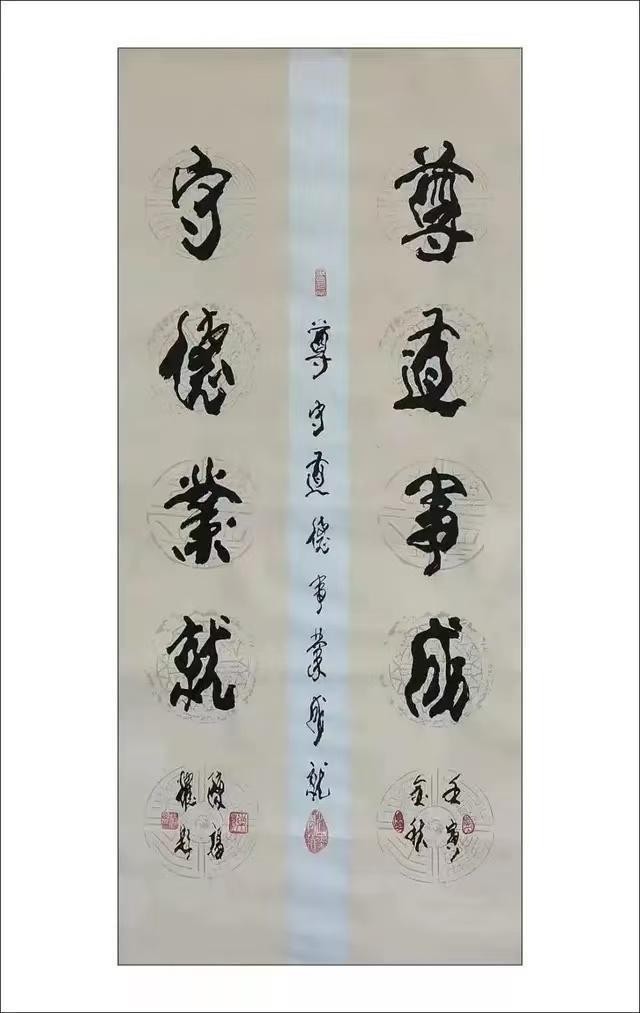 尊道事成
壬寅
金秋
尊守道德事業成就
守德業就